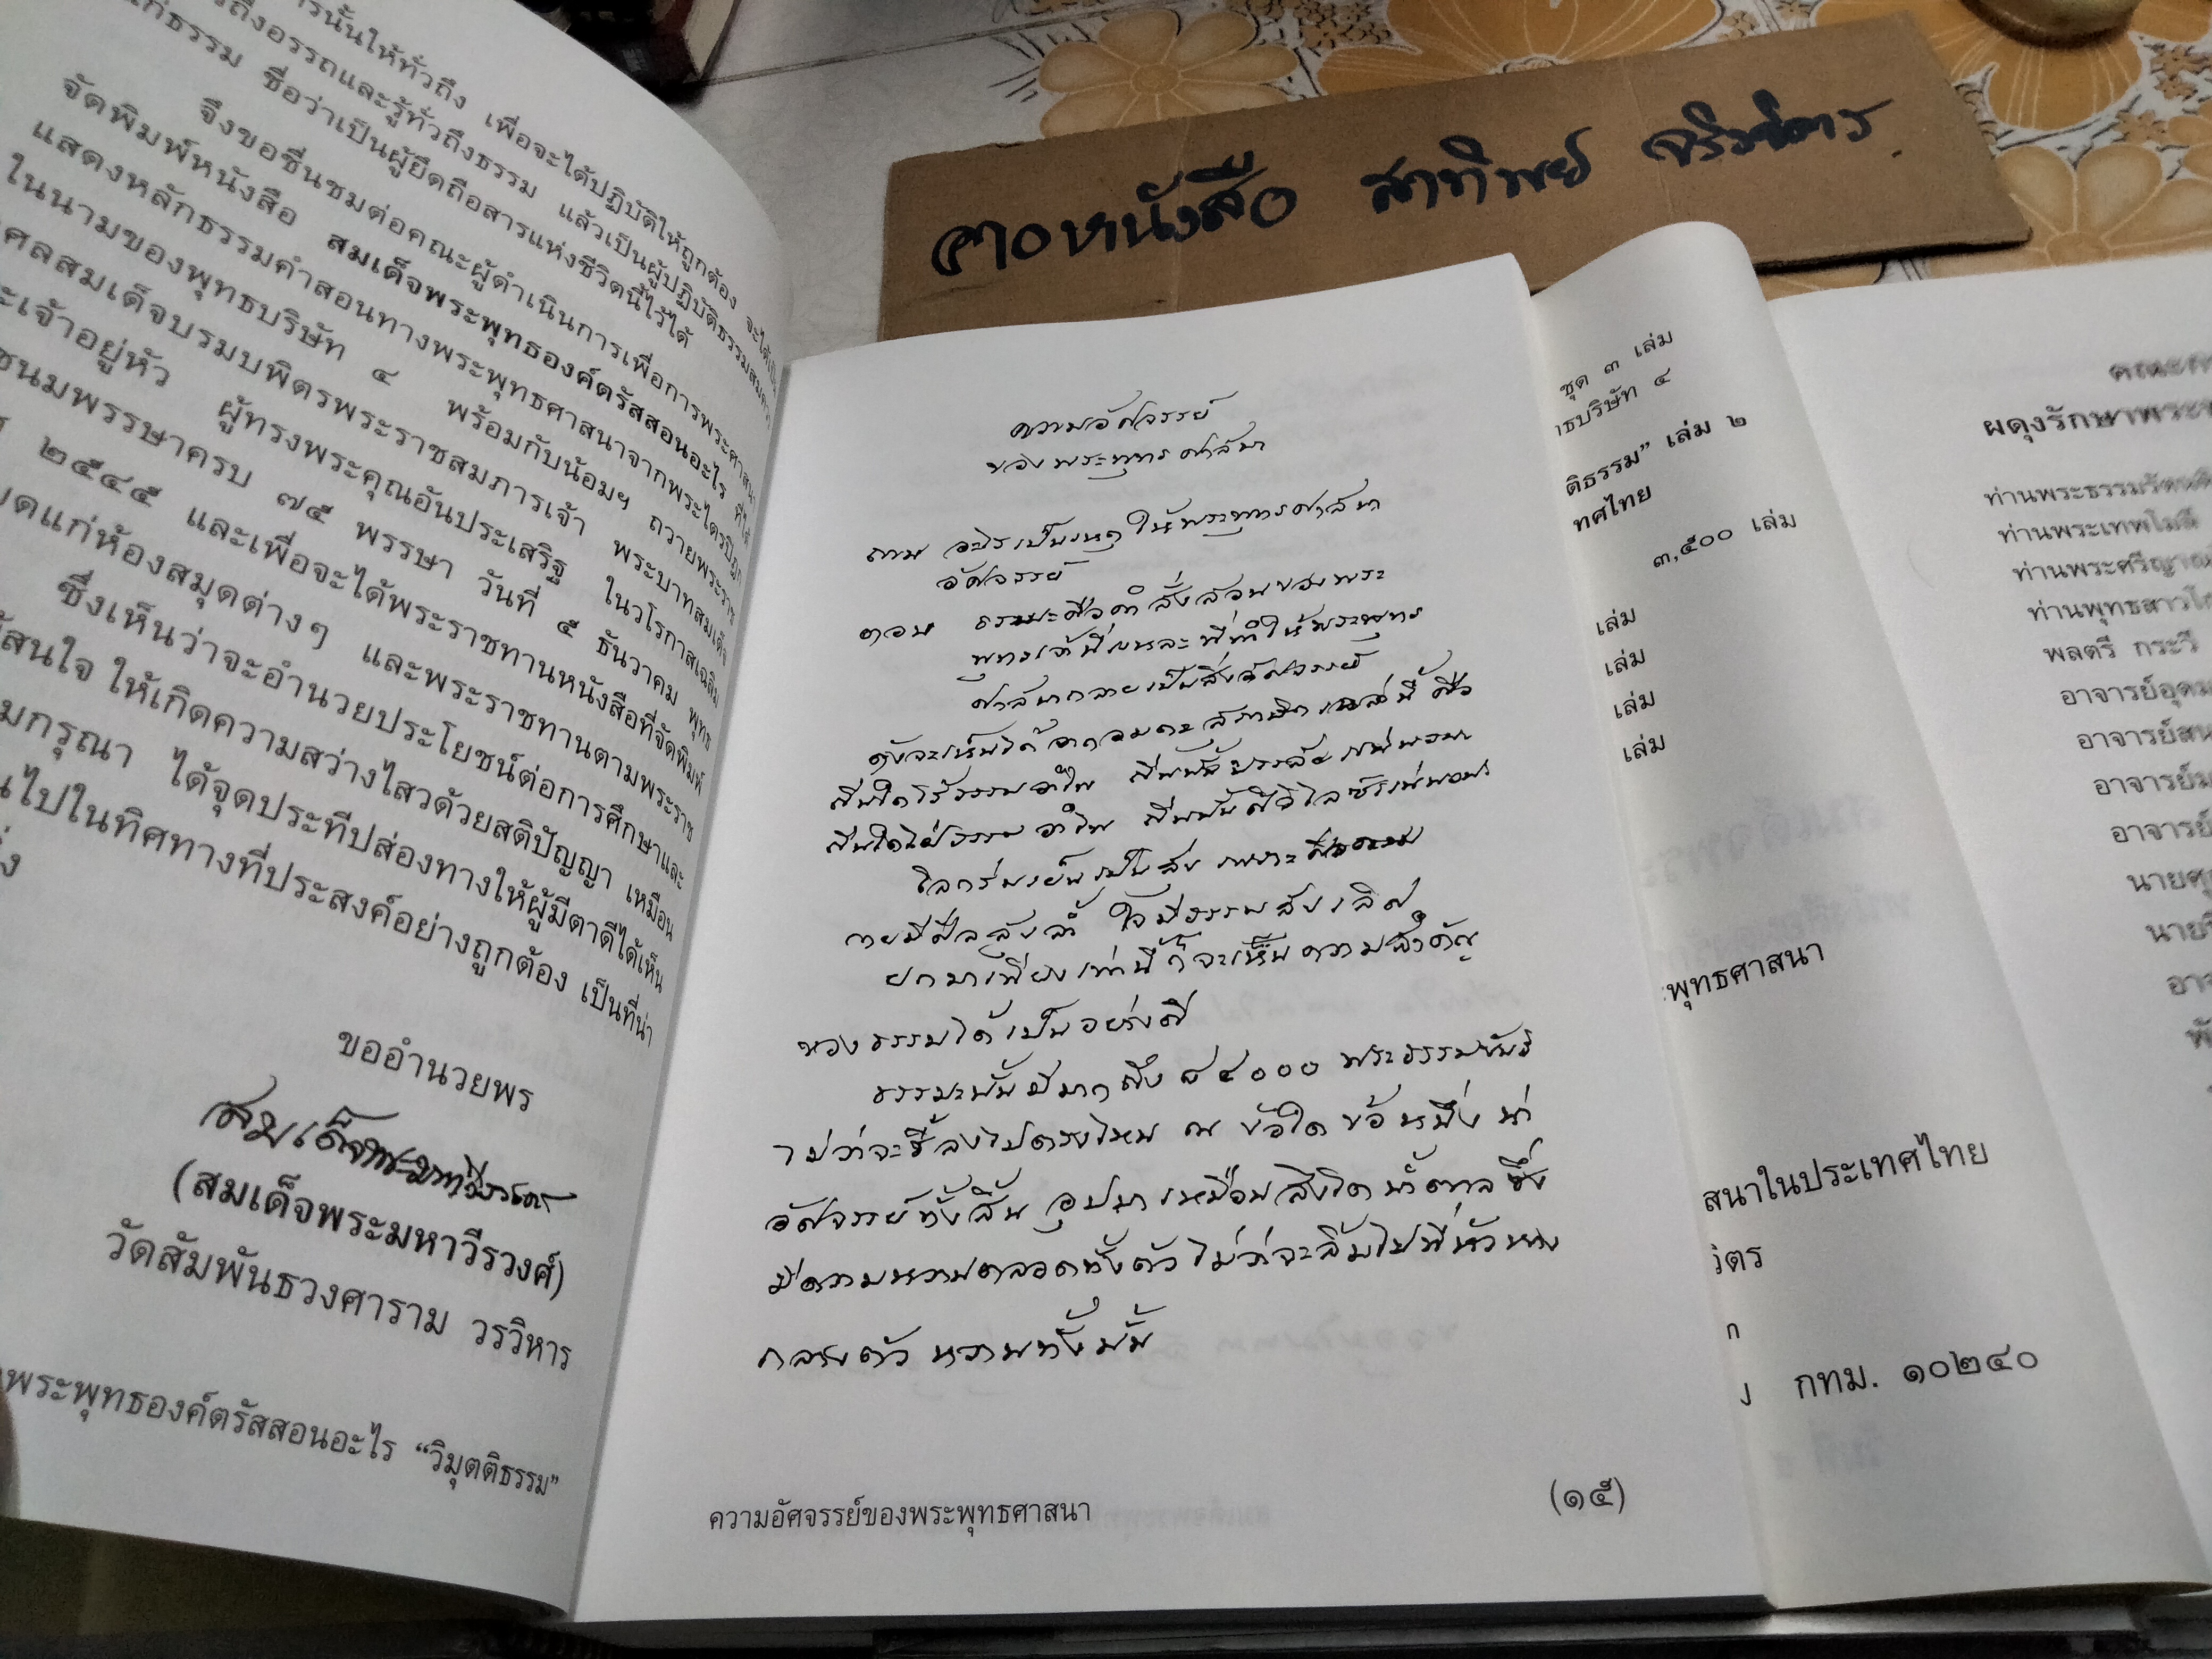 การนั้นให้ทั่วถึง เพื่อจะได้ปฏิบัติให้ถูกต้อง จะได้เป็น
ถึงอรรถและรู้ทั่วถึงธรรม แล้วเป็นผู้ปฏิบัติธรรมสมควร
แก่ธรรม ชื่อว่าเป็นผู้ยึดถือสารแห่งชีวิตนี้ไว้ได้
จึงขอชื่นชมต่อคณะผู้ดำเนินการเพื่อการพระศาสนา
จัดพิมพ์หนังสือ สมเด็จพระพุทธองค์ตรัสสอนอะไร ที่ได้
แสดงหลักธรรมคำสอนทางพระพุทธศาสนาจากพระไตรปิฎก
ในนามของพุทธบริษัท ๔ พร้อมกับน้อมฯ ถวายพระราช
กุศลสมเด็จบรมบพิตรพระราชสมภารเจ้า พระบาทสมเด็จ
พระเจ้าอยู่หัว ผู้ทรงพระคุณอันประเสริฐ ในวโรกาสเฉลิม
ชนมพรรษาครบ ๗๕ พรรษา วันที่ ๕ ธันวาคม พุทธ
๒๕๔๕ และเพื่อจะได้พระราชทานหนังสือที่จัดพิมพ์
แก่ห้องสมุดต่างๆ และพระราชทานตามพระราช
ซึ่งเห็นว่าจะอำนวยประโยชน์ต่อการศึกษาและ
สนใจ ให้เกิดความสว่างไสวด้วยสติปัญญา เหมือน
กรุณา ได้จุดประทีปส่องทางให้ผู้มีตาดีได้เห็น
ไปในทิศทางที่ประสงค์อย่างถูกต้อง เป็นที่น่า
ขออำนวยพร
สมเด็จพระมหาวีรวงศ์
(สมเด็จพระมหาวีรวงศ์)
วัดสัมพันธวงศาราม วรวิหาร
พระพุทธองค์ตรัสสอนอะไร “วิมุตติธรรม”
ศาลาหนังสือ
ความอัศจรรย์
ของพระพุทธศาสนา
ถาม อะไรเป็นเหตุให้พระพุทธศาสนา
อัศจรรย์
ตอบ ธรรมะคือคำสั่งสอนของพระ
พุทธเจ้านี่แหละ ที่ทำให้พระพุทธ
ศาสนากลายเป็นสิ่งอัศจรรย์
ดังจะเห็นได้จากอมตะสุภาษิตเหล่านี้ คือ
โลกร่มเย็นเป็นสุข เพราะศีลธรรม
กายมีศีลสูงล้ำ ใจมีธรรมสูงเลิศ
ยกมาเพียงเท่านี้ก็จะเห็นความสำคัญ
ของธรรมได้เป็นอย่างดี
ธรรมะนั้นมีมากถึง ๘๔๐๐๐ พระธรรมขันธ์
ไม่ว่าจะชี้ลงไปตรงไหน ณ ข้อใด ข้อหนึ่ง น่า
อัศจรรย์ทั้งสิ้น อุปมาเหมือนสิงโตน้ำตาล ซึ่ง
มีความหวานตลอดทั้งตัว ไม่ว่าจะลิ้มไปที่หัว หาง
กลางตัว หวานทั้งนั้น
ความอัศจรรย์ของพระพุทธศาสนา
(๑๕)
ชุด ๓ เล่ม
ธบริษัท ๔
ติธรรม” เล่ม ๒
ทศไทย
๓,๕๐๐ เล่ม
เล่ม
เล่ม
เล่ม
เล่ม
พุทธศาสนา
สนาในประเทศไทย
กทม. ๑๐๒๔๐
ผดุงรักษาพระ
ท่านพระธรรมรัตน
ท่านพระเทพโมลี
ท่านพระศรีญาณ
ท่านพุทธสาวโก
พลตรี กระวี
อาจารย์อุดม
อาจารย์สน
อาจารย์ม
อาจารย์